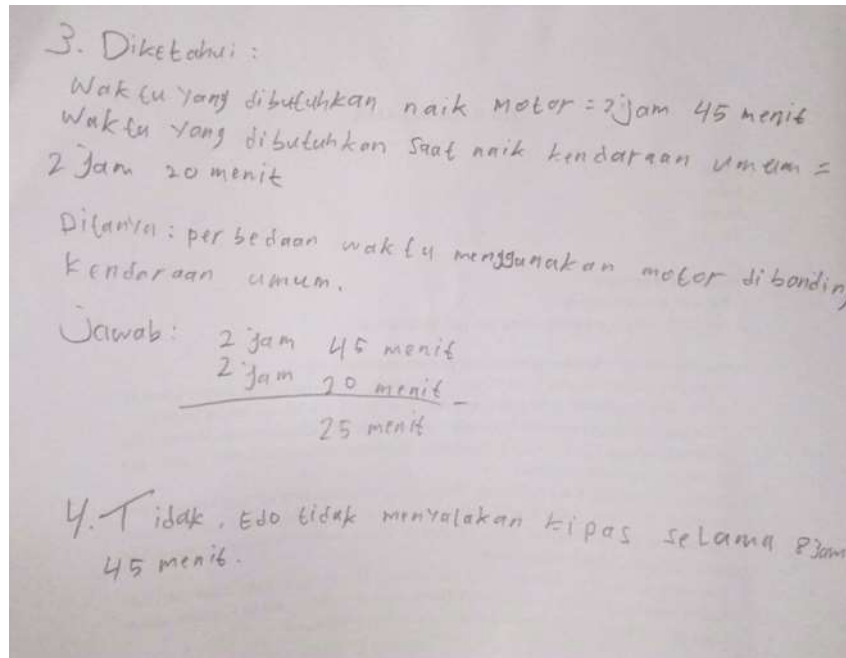 3. Diketahui :
Waktu yang dibutuhkan naik motor = 2 jam 45 menit
Waktu yang dibutuhkan saat naik kendaraan umum =
2 jam 20 menit
Ditanya : perbedaan waktu menggunakan motor dibanding
kendaraan umum.
Jawab : 2 jam 45 menit
2 jam 20 menit -
25 menit
4. Tidak, Edo tidak menyalakan kipas selama 8 jam
45 menit.